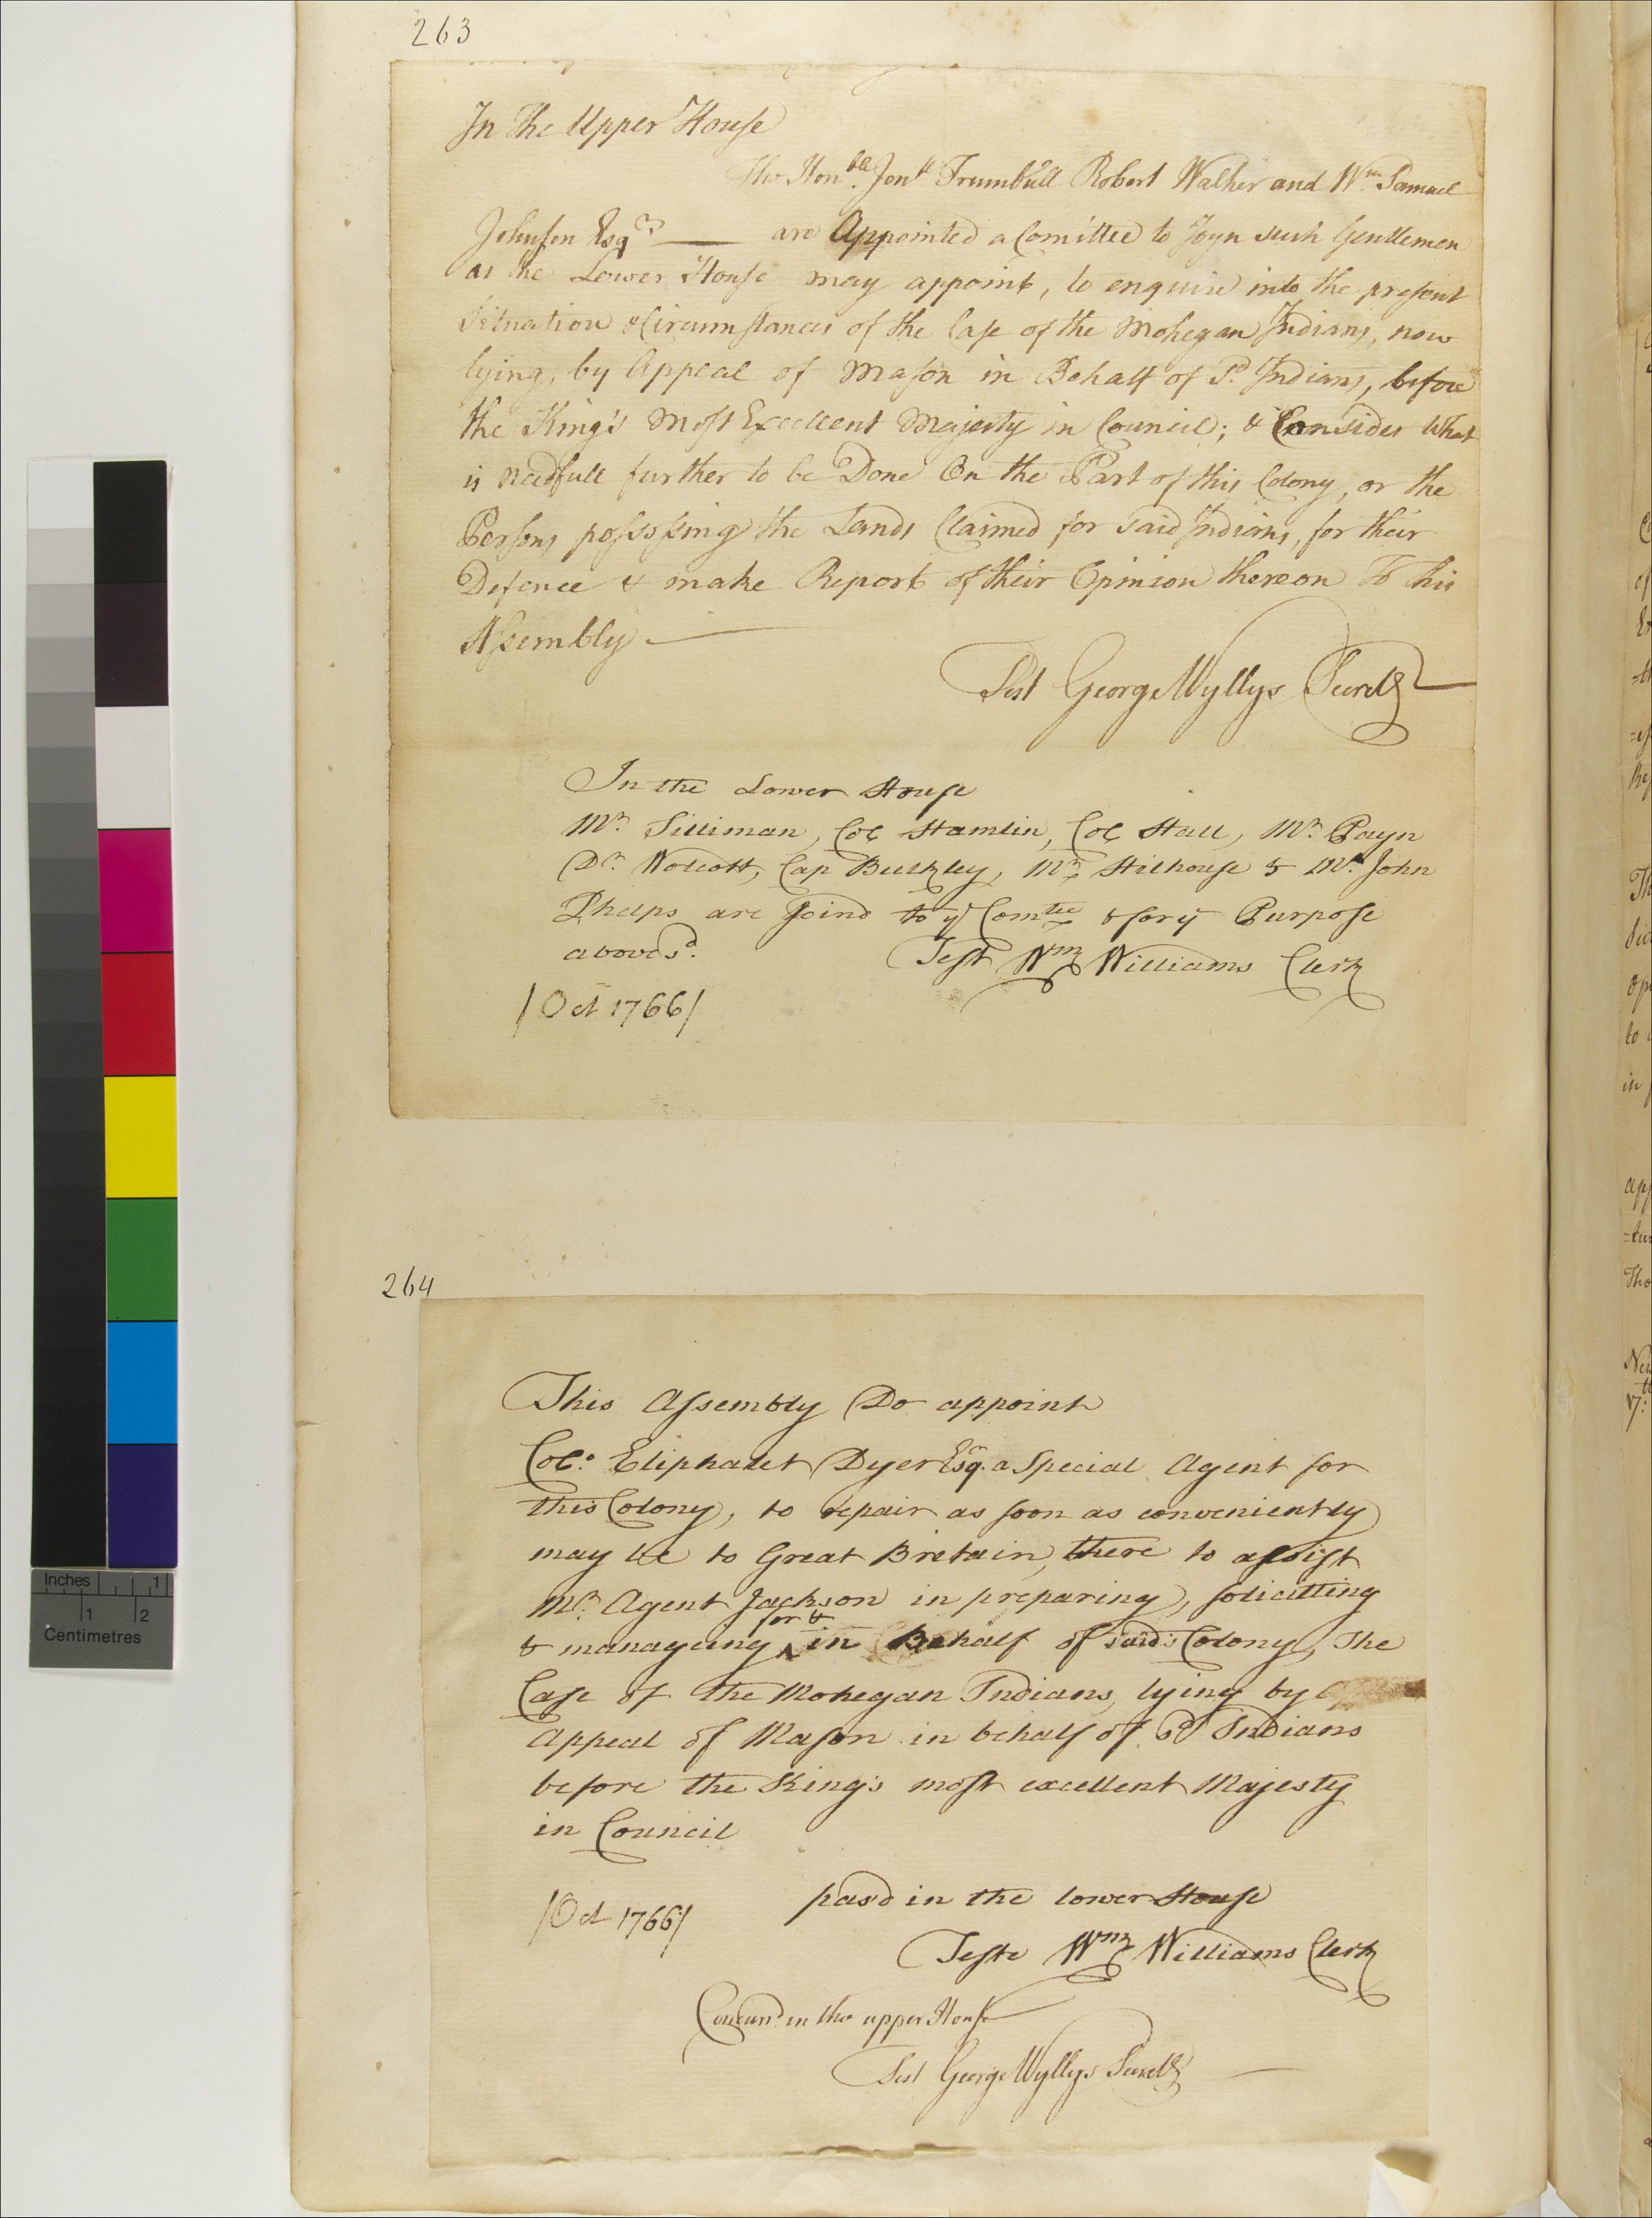 263
In the Upper House
The Hon.ble Jonth Trumbull Robert Walker and Wm Samuel
Johnson Esqrs — are Appointed a Comittee to Joyn such Gentlemen
as the Lower House may appoint, to enquire into the present
Situation & Circumstances of the Case of the Mohegan Indians, now
lying, by Appeal of Mason in Behalf of Sd Indians, before
the King's Most Excellent Majesty in Council; & Consider What
is Needfull further to be Done On the Part of this Colony, or the
Persons possessing the Lands Claimed for said Indians, for their
Defence & make Report of their Opinion thereon To this
Assembly —
Test George Wyllys Secrety
In the Lower House
Mr Silliman, Col Hamlin, Col Hall, Mr Payn
Dr Wolcott, Cap Bulkley, Mr Hilhouse & Mr John
Phelps are Joind to ye Comtee & for ye Purpose
aboves.d
Test Wm Williams Clerk
/Oct 1766/
264
This Assembly Do appoint
Col.o Eliphalet Dyer Esqr. a Special Agent for
this Colony, to repair as soon as conveniently
may be to Great Bretain, there to assist
Mr Agent Jackson in preparing, soliciting
for &
& manageing ^ in Behalf of said Colony, The
Case of the Mohegan Indians, lying by
Appeal of Mason in behalf of sd Indians
before the King's most excellent Majesty
in Council
pasd in the lower House
/Oct 1766/
Teste Wm Williams Clerk
Concurrd in the upper House
Test George Wyllys Secrety
Inches 1
1 2
Centimetres